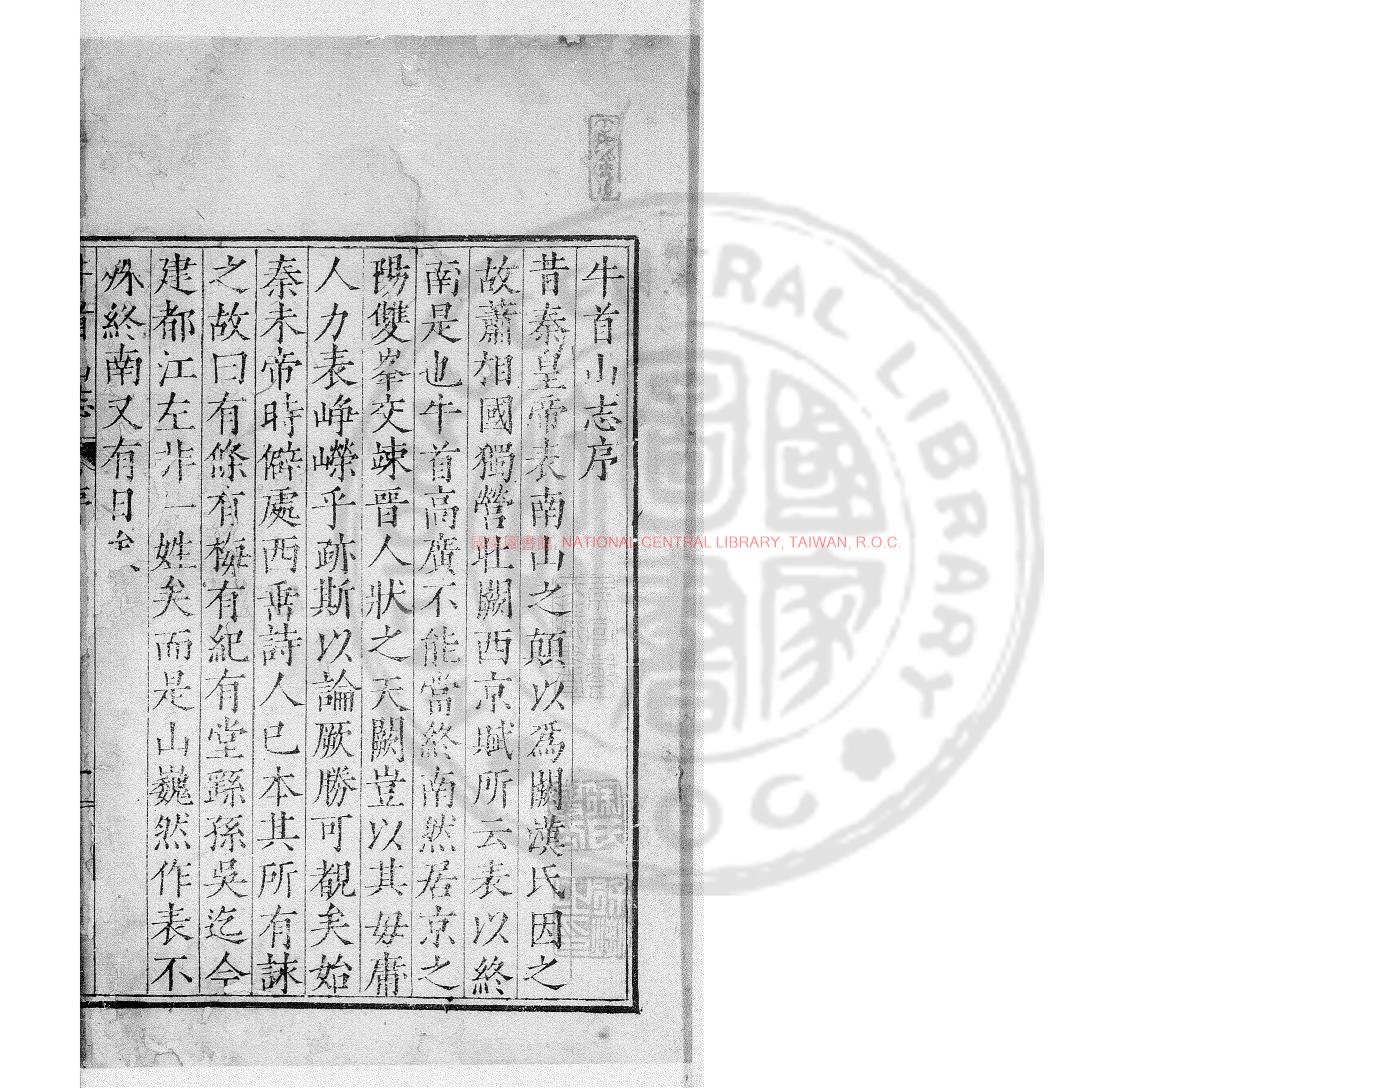 牛首山志序
昔秦皇帝表南山之顛以爲闕漢氏因之
故蕭相國獨營壯闕西京賦所云表以終
南是也牛首高廣不能當終南然居京之
陽雙峯交竦晋人狀之天闕豈以其毋庸
人力表崢嶸乎跡斯以論厥勝可覩矣始
秦未帝時僻處西垂詩人已本其所有誄
之故曰有條有梅有紀有堂繇孫吳迄今
建都江左非一姓矣而是山巍然作表不
殊終南又有日
國家圖書館, NATIONAL CENTRAL LIBRARY, TAIWAN, R.O.C.
RAL LIBRARY